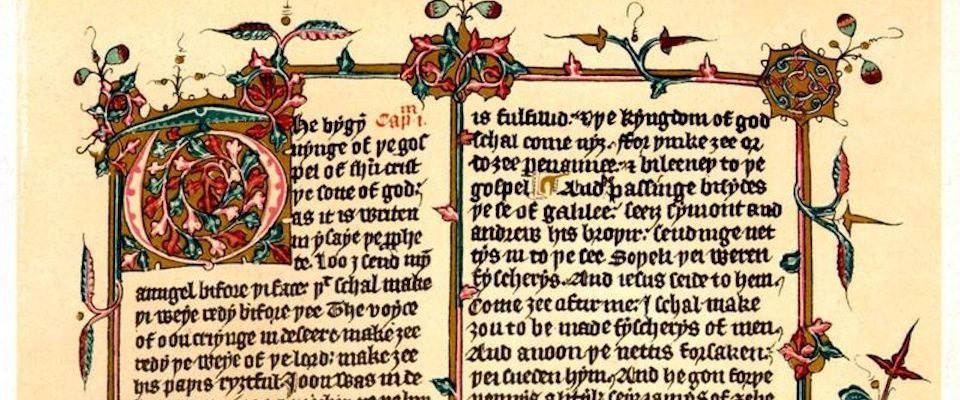 Capm i.
The bygyn
nynge of þe gos
pel of ihu crist
þe sone of god:
as it is writen
in ysaye þe pphe
te. Loo j send myn
aungel bifore þi face. þt schal make
þi weye redy bifore þee The voyce
of oon cryinge in deseert make ȝee
redy þe weye of þe lord: make ȝee
his paþis ryȝtful. Joon was in de
is fulfillid: & þe kyngdom of god
schal come nyȝ: ffor þinke ȝee or
do ȝee penaunce: & bileeuep to þe
gospel And passinge bisydes
þe se of galilee: seeȝ symont and
andrew his broþir: sendinge net
tys in to þe see Soþeli þei weren
fyscherys. And iesus seide to hem.
Come ȝee aftir me: J schal make
ȝou to be made fyscherys of men,
And anoon þe nettis forsaken:
þei sueden hym. And he gon forþe